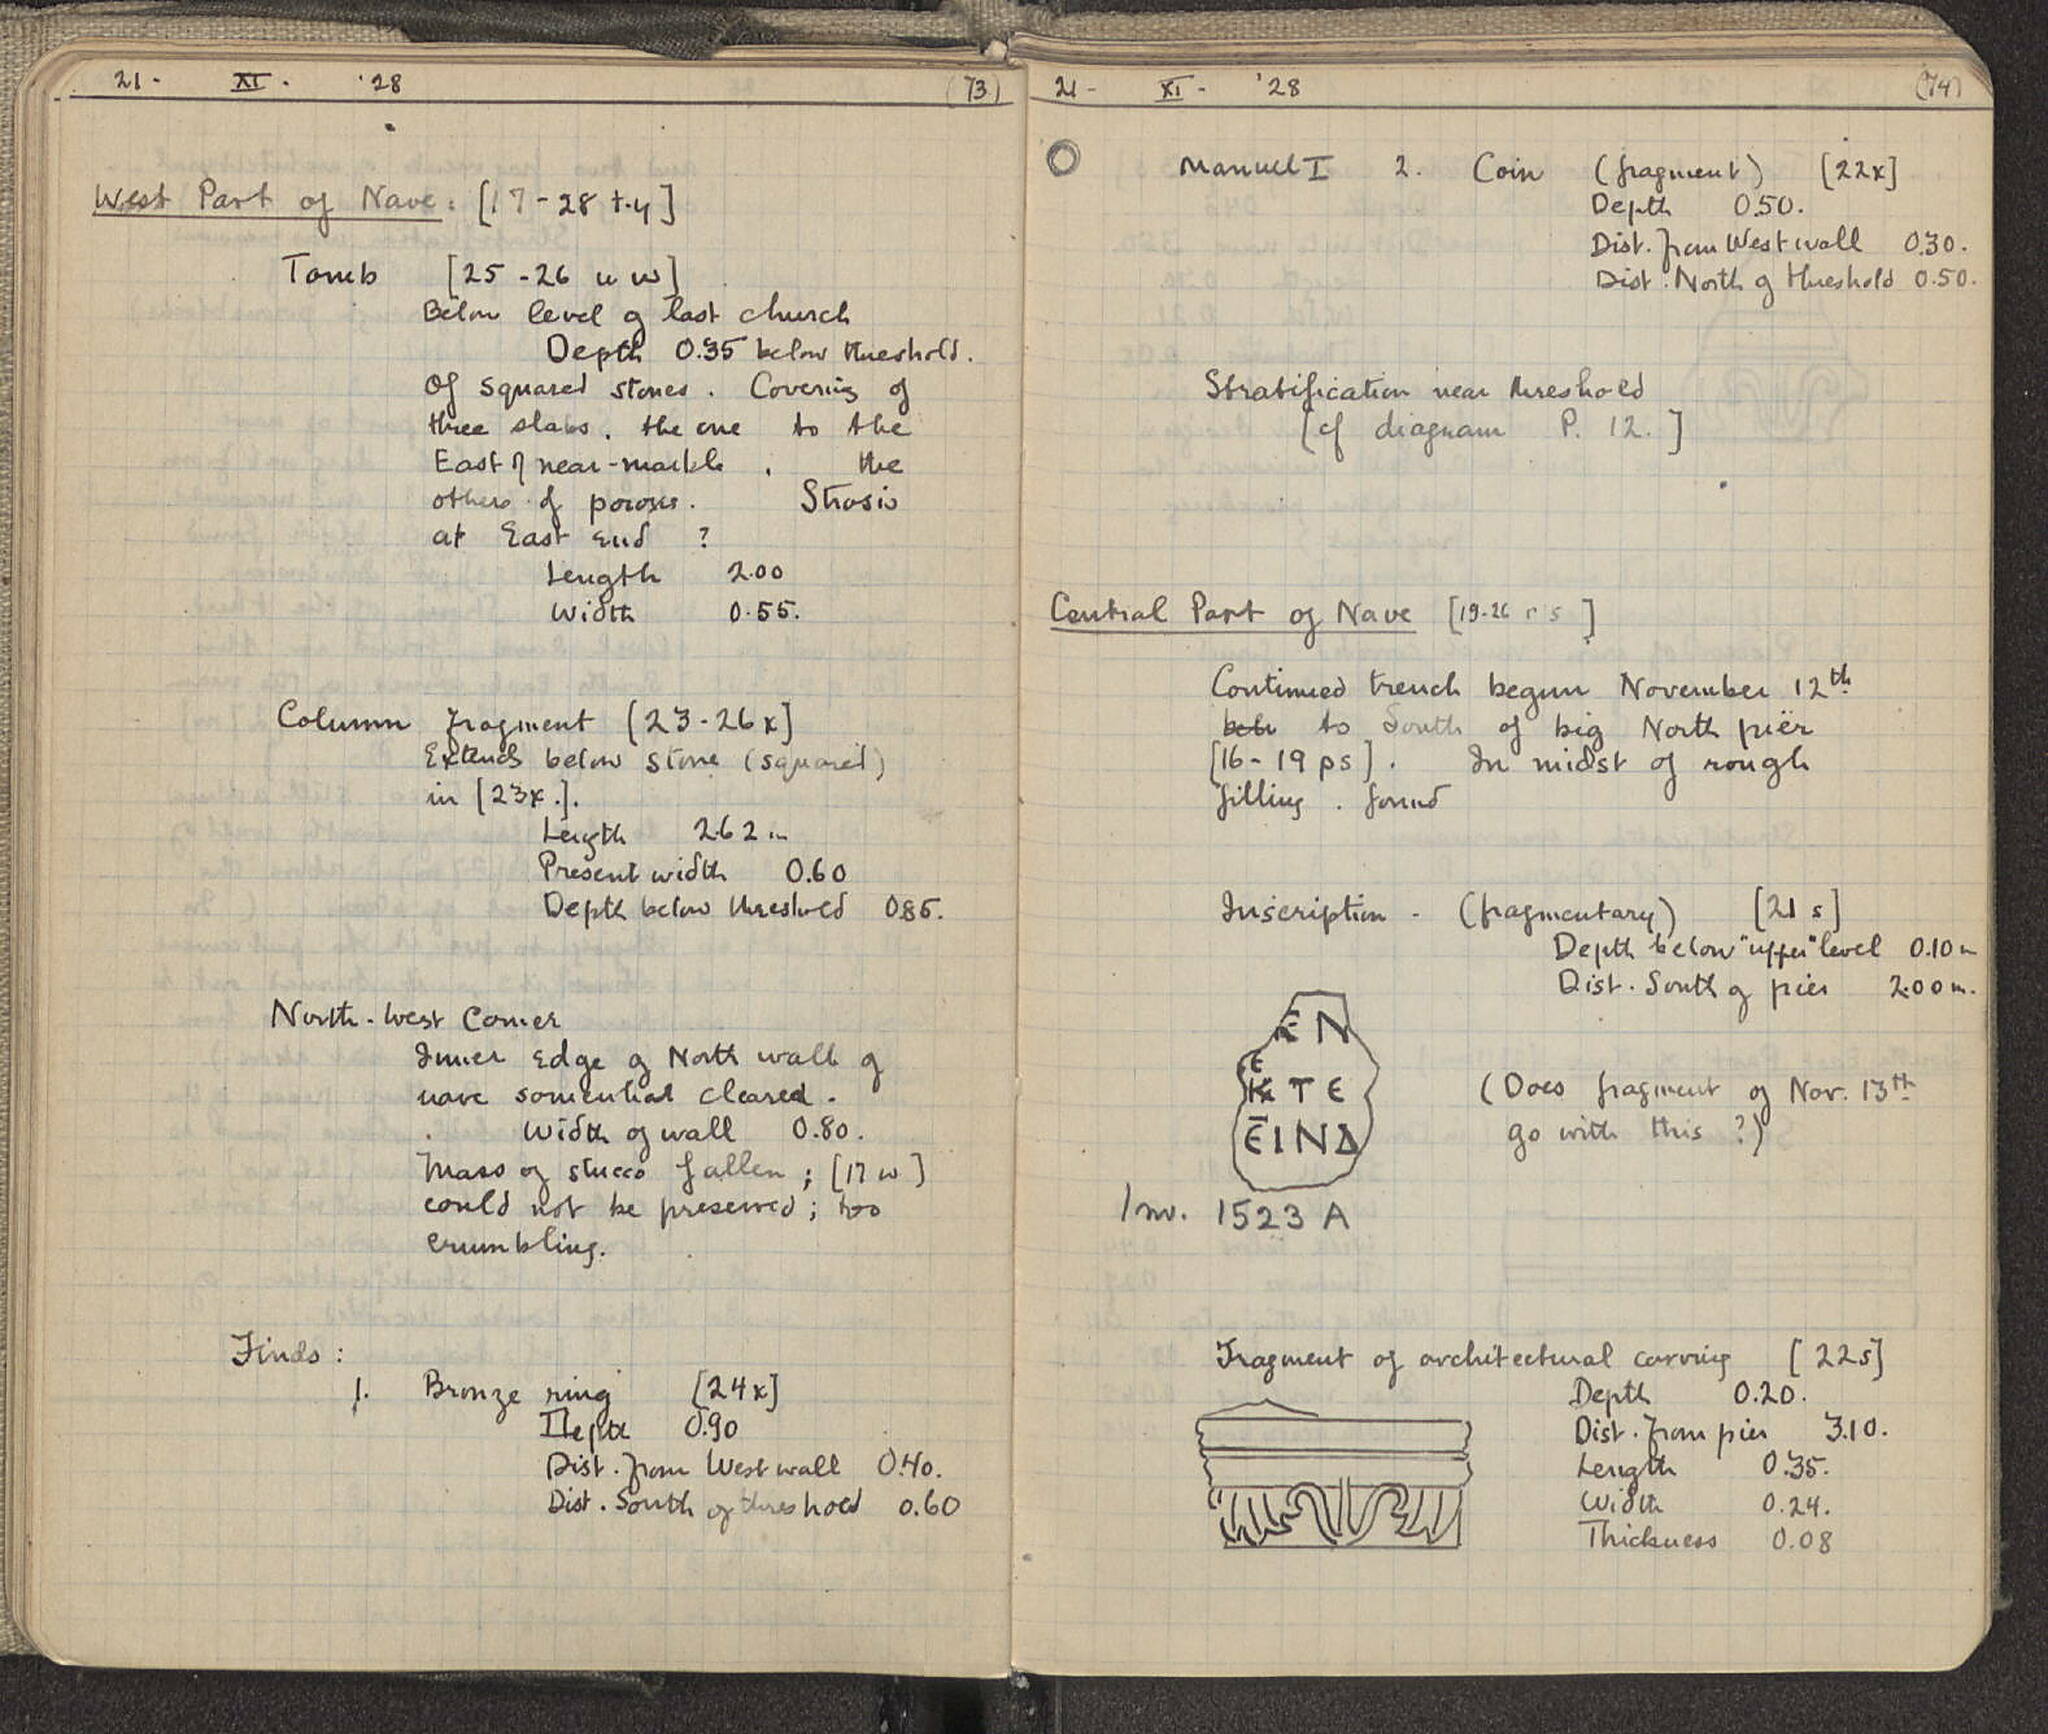 21 - XI - '28 (73)
West Part of Nave: [17-28 t-y]
Tomb [25-26 u w]
Below level of last church
Depth 0.35 below threshold.
Of squared stones. Covering of
three slabs, the one to the
East of near-marble, the
others of poros. Strosis
at East end ?
Length 2.00
Width 0.55.
Column fragment [23-26x]
Extends below stone (squared)
in [23x.].
Length 2.62 m
Present width 0.60
Depth below threshold 0.85.
North-West Corner
Inner edge of North wall of
nave somewhat cleared.
Width of wall 0.80.
Mass of stucco fallen; [17 w]
could not be preserved; too
crumbling.
Finds:
1. Bronze ring [24x]
Depth 0.90
Dist. from West wall 0.40.
Dist. South of threshold 0.60
21 - XI - '28 (74)
Manuel I 2. Coin (fragment) [22x]
Depth 0.50.
Dist. from West wall 0.30.
Dist. North of threshold 0.50.
Stratification near threshold
[cf diagram P. 12.]
Central Part of Nave [19-26 r s]
Continued trench begun November 12th
to South of big North pier
[16-19 ps]. In midst of rough
filling. found
Inscription - (fragmentary) [21 s]
Depth below "upper" level 0.10 m
Dist. South of pier 2.00 m.
ΕΝ
Ε
ΚΤΕ
ΕΙΝΔ
(Does fragment of Nov. 13th
go with this ?)
Inv. 1523 A
Fragment of architectural carving [22s]
Depth 0.20.
Dist. from pier 3.10.
Length 0.35.
Width 0.24.
Thickness 0.08